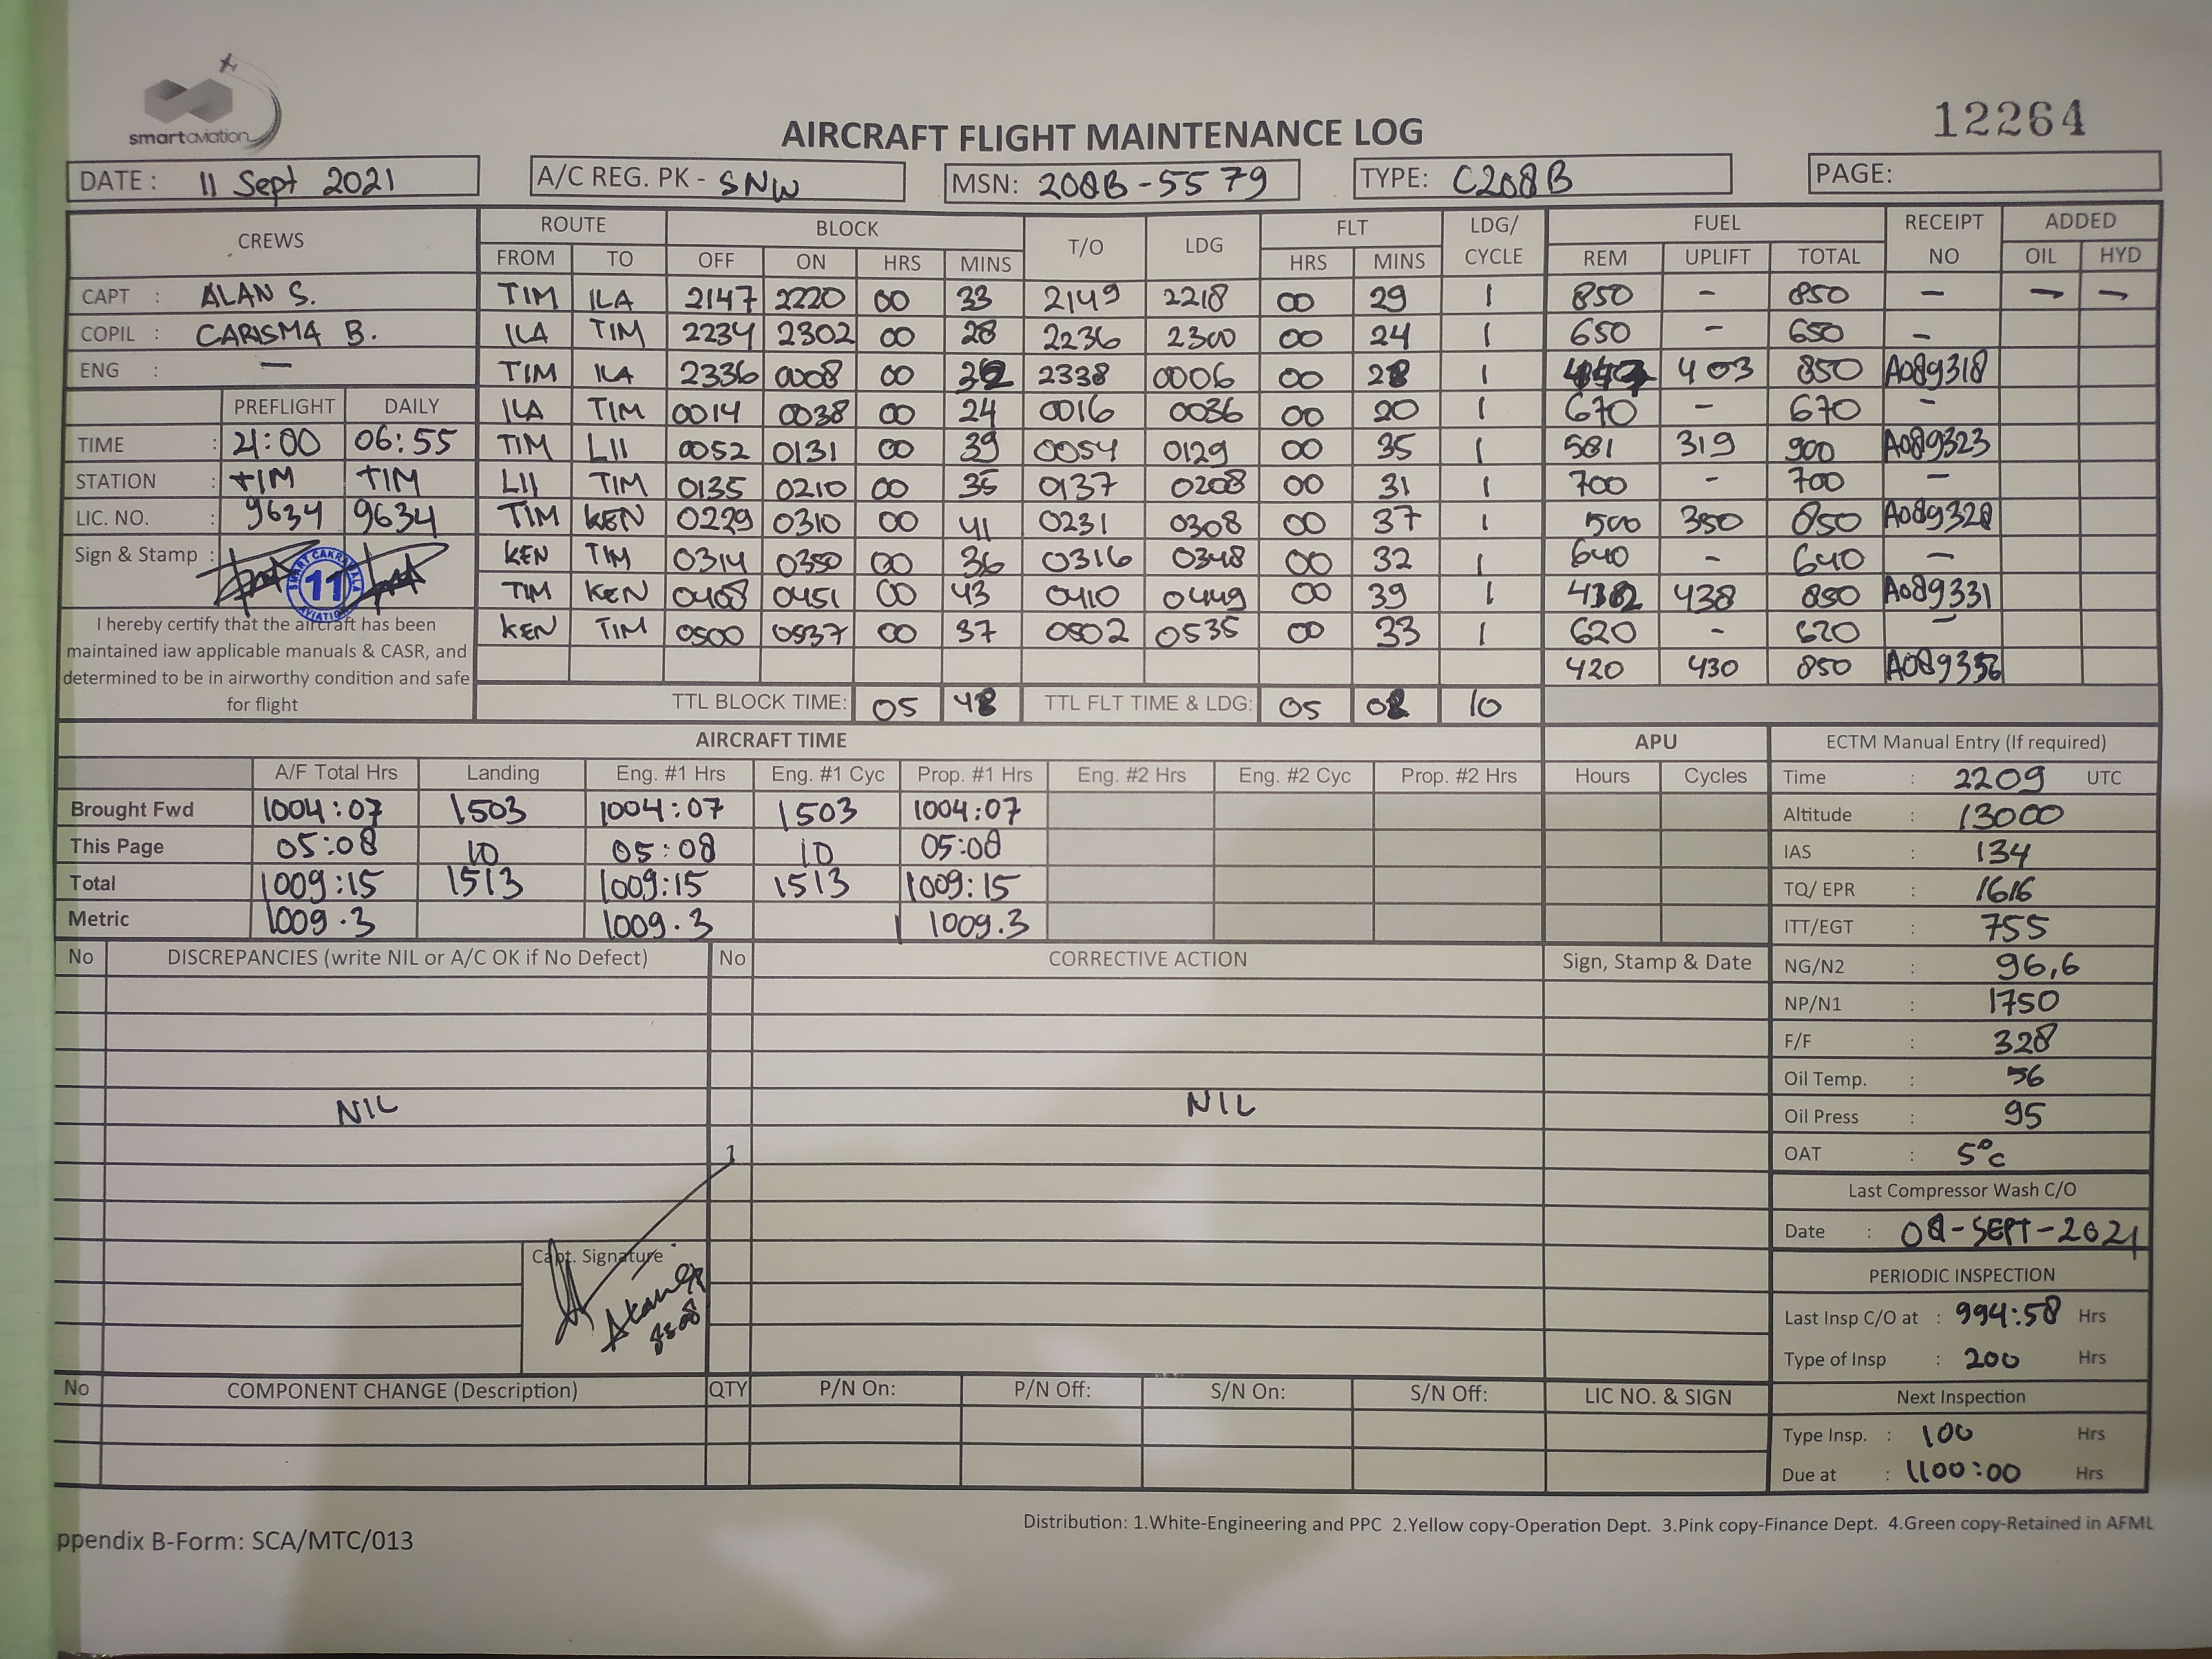 smartaviation
12264
AIRCRAFT FLIGHT MAINTENANCE LOG
DATE : 11 Sept 2021 A/C REG. PK - SNW MSN: 208B-5579 TYPE: C208B PAGE:
CREWS ROUTE BLOCK T/O LDG FLT LDG/ CYCLE FUEL RECEIPT NO ADDED
FROM TO OFF ON HRS MINS HRS MINS REM UPLIFT TOTAL OIL HYD
CAPT : ALAN S. TIM ILA 2147 2220 00 33 2149 2218 00 29 1 850 - 850 - - -
COPIL : CARISMA B. ILA TIM 2234 2302 00 28 2236 2300 00 24 1 650 - 650 -
ENG : - TIM ILA 2336 0008 00 32 2338 0006 00 28 1 403 850 A089318
PREFLIGHT DAILY ILA TIM 0014 0038 00 24 0016 0036 00 20 1 670 - 670 -
TIME : 21:00 06:55 TIM LII 0052 0131 00 39 0054 0129 00 35 1 581 319 900 A089323
STATION : TIM TIM LII TIM 0135 0210 00 35 0137 0208 00 31 1 700 - 700 -
LIC. NO. : 9634 9634 TIM KEN 0229 0310 00 41 0231 0308 00 37 1 500 350 850 A089328
Sign & Stamp : KEN TIM 0314 0350 00 36 0316 0348 00 32 1 640 - 640 -
SMART CAKRAWALA 11 AVIATION
TIM KEN 0408 0451 00 43 0410 0449 00 39 1 438 850 A089331
KEN TIM 0500 0537 00 37 0502 0535 00 33 1 620 - 620 -
420 430 850 A089336
I hereby certify that the aircraft has been
maintained iaw applicable manuals & CASR, and
determined to be in airworthy condition and safe
for flight
TTL BLOCK TIME: 05 48 TTL FLT TIME & LDG: 05 08 10
AIRCRAFT TIME APU ECTM Manual Entry (If required)
A/F Total Hrs Landing Eng. #1 Hrs Eng. #1 Cyc Prop. #1 Hrs Eng. #2 Hrs Eng. #2 Cyc Prop. #2 Hrs Hours Cycles Time : 2209 UTC
Brought Fwd 1004:07 1503 1004:07 1503 1004:07 Altitude : 13000
This Page 05:08 10 05:08 10 05:08 IAS : 134
Total 1009:15 1513 1009:15 1513 1009:15 TQ/ EPR : 1616
Metric 1009.3 1009.3 1009.3 ITT/EGT : 755
No DISCREPANCIES (write NIL or A/C OK if No Defect) No CORRECTIVE ACTION Sign, Stamp & Date NG/N2 : 96,6
NP/N1 : 1750
F/F : 328
Oil Temp. : 56
NIL NIL Oil Press : 95
OAT : 5°C
Last Compressor Wash C/O
Date : 08-SEPT-2021
Capt. Signature
PERIODIC INSPECTION
Last Insp C/O at : 994:58 Hrs
Type of Insp : 200 Hrs
No COMPONENT CHANGE (Description) QTY P/N On: P/N Off: S/N On: S/N Off: LIC NO. & SIGN Next Inspection
Type Insp. : 100 Hrs
Due at : 1100:00 Hrs
Distribution: 1.White-Engineering and PPC 2.Yellow copy-Operation Dept. 3.Pink copy-Finance Dept. 4.Green copy-Retained in AFML
ppendix B-Form: SCA/MTC/013